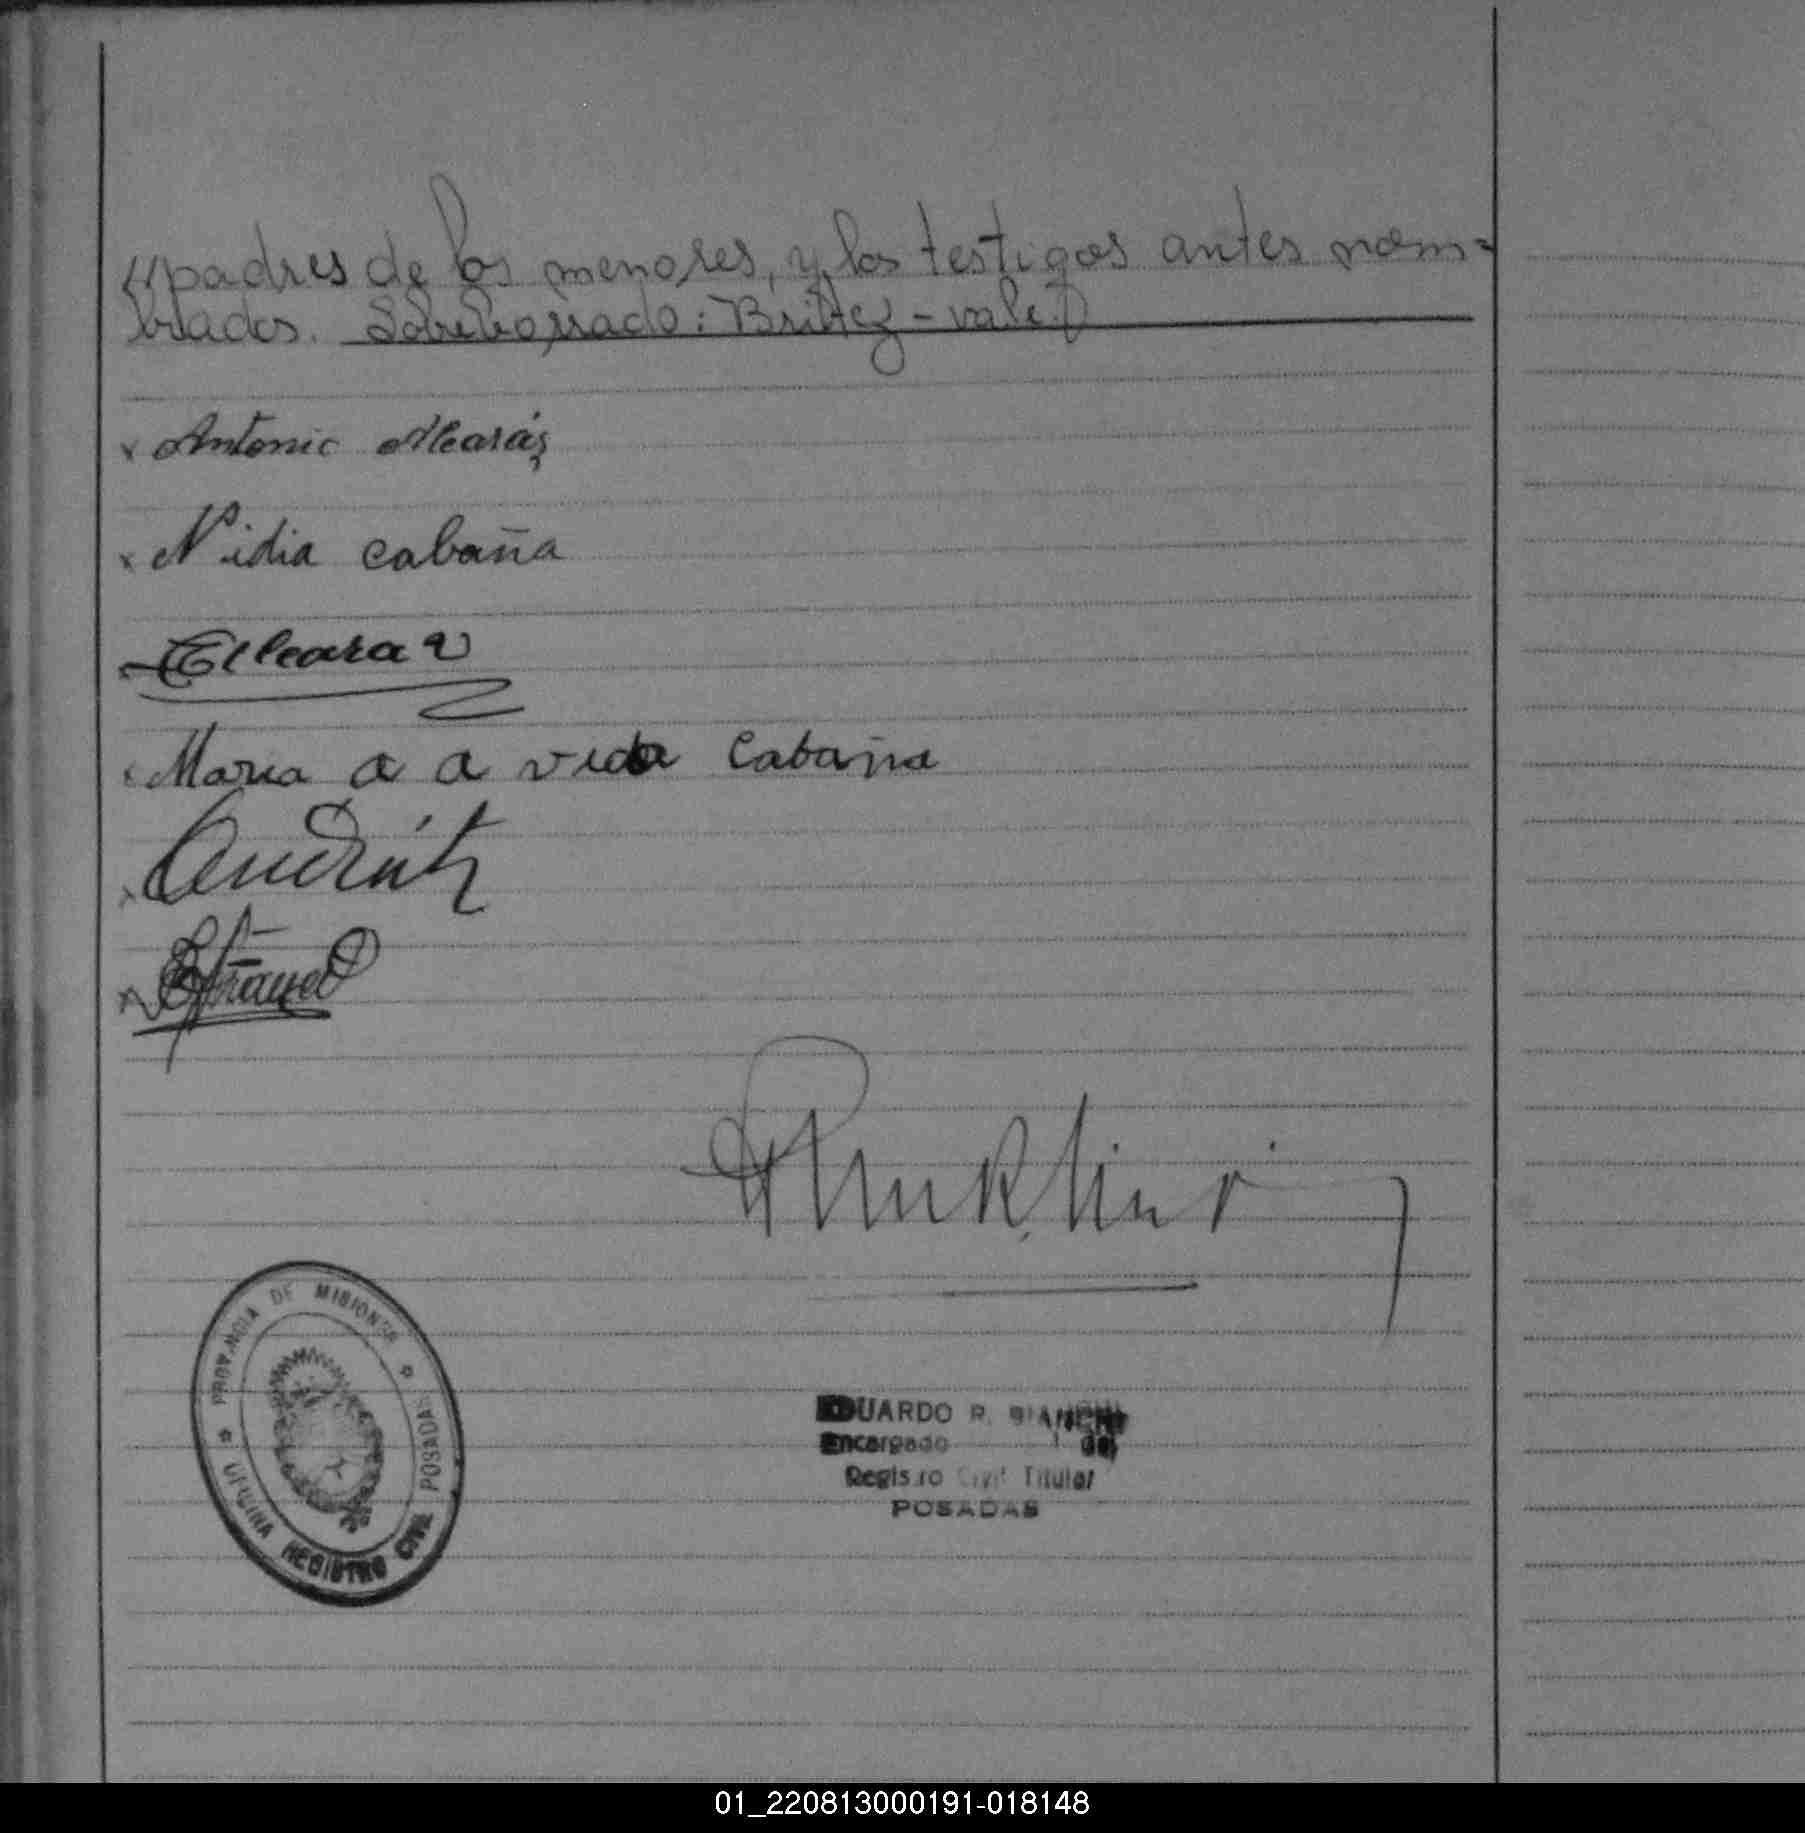 //padres de los menores, y los testigos antes nom=
brados. Sobreborrado: Brítez - vale.
x Antonio Alcaráz
x Nidia cabaña
Alcaraz
Maria a a vida Cabaña
EDUARDO R. BIANCHI
Encargado del
Registro Civil Titular
POSADAS
PROVINCIA DE MISIONES
OFICINA REGISTRO CIVIL POSADAS
01_220813000191-018148